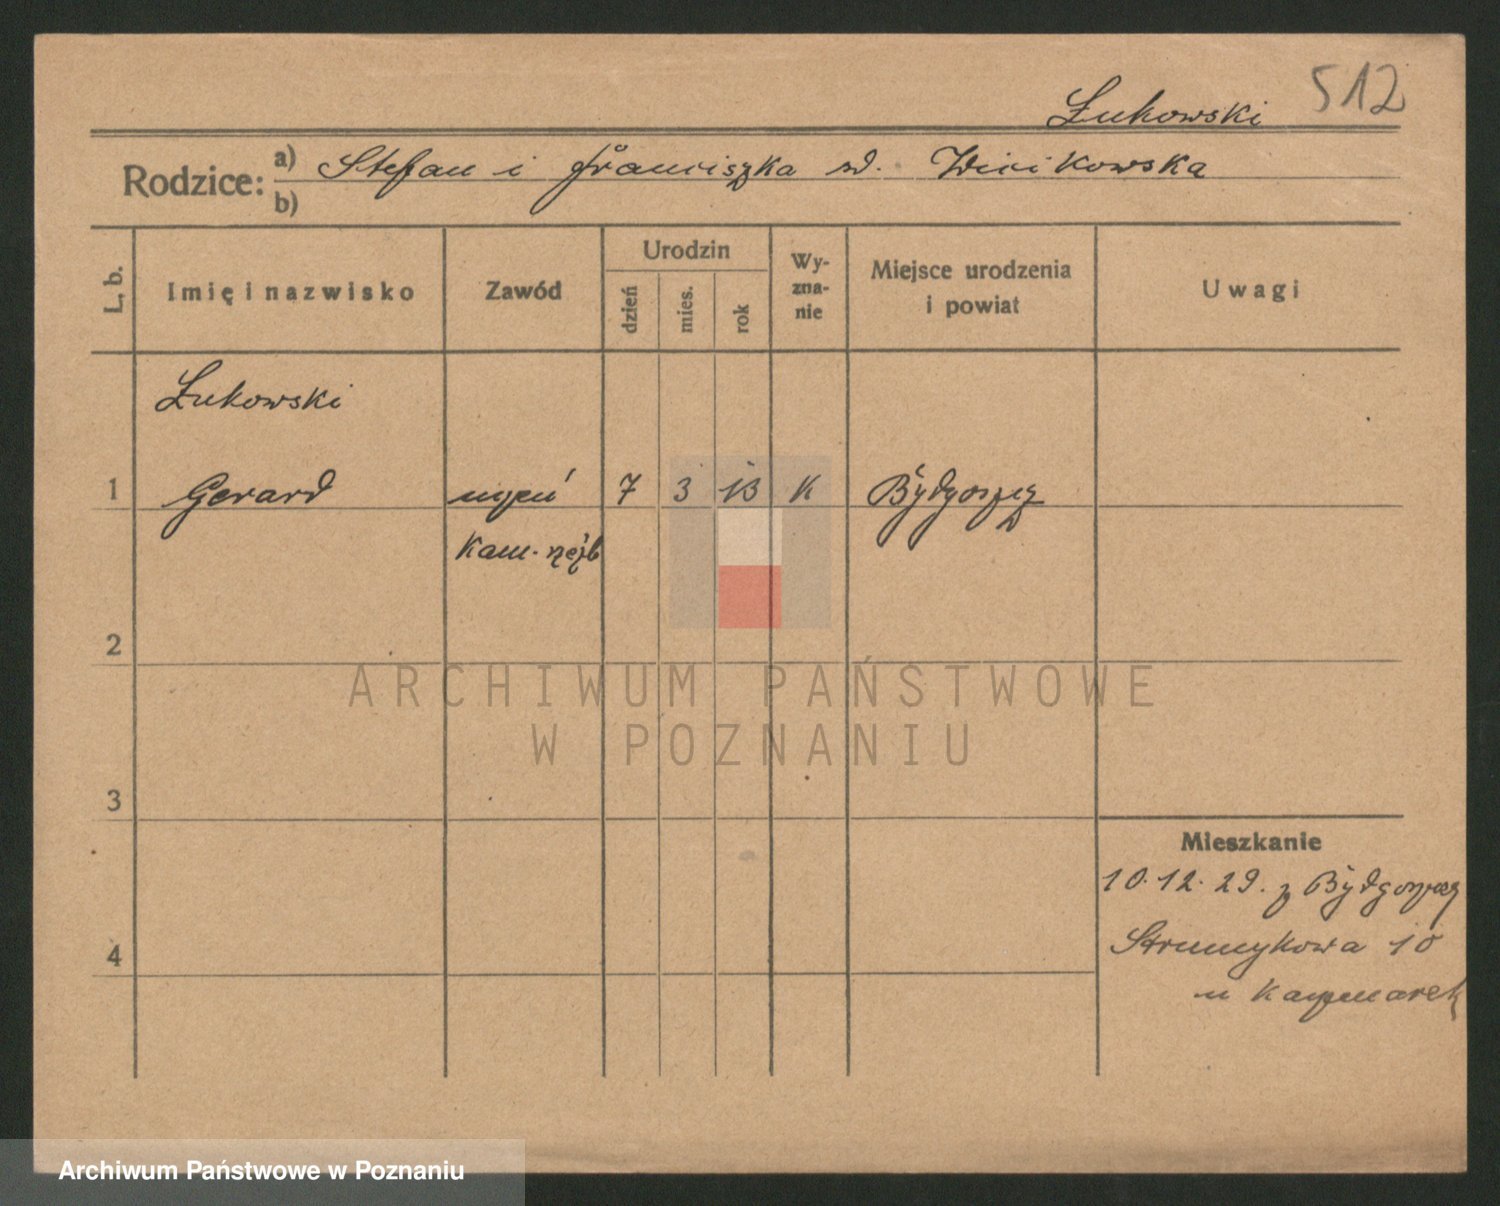 512
Łukowski
Rodzice: a) Stefan i Franciszka
b)
L. b.
Imię i nazwisko
Zawód
Urodzin
dzień
mies.
rok
Wy-
zna-
nie
Miejsce urodzenia
i powiat
Uwagi
Łukowski
1 Gerard uczeń 7 3 13 K Bydgoszcz
kam. rzeźb
2
3
4
Mieszkanie
10.12.29. z Bydgoszczy
Strumykowa 10
u Kaczmarek
ARCHIWUM PAŃSTWOWE
W POZNANIU
Archiwum Państwowe w Poznaniu